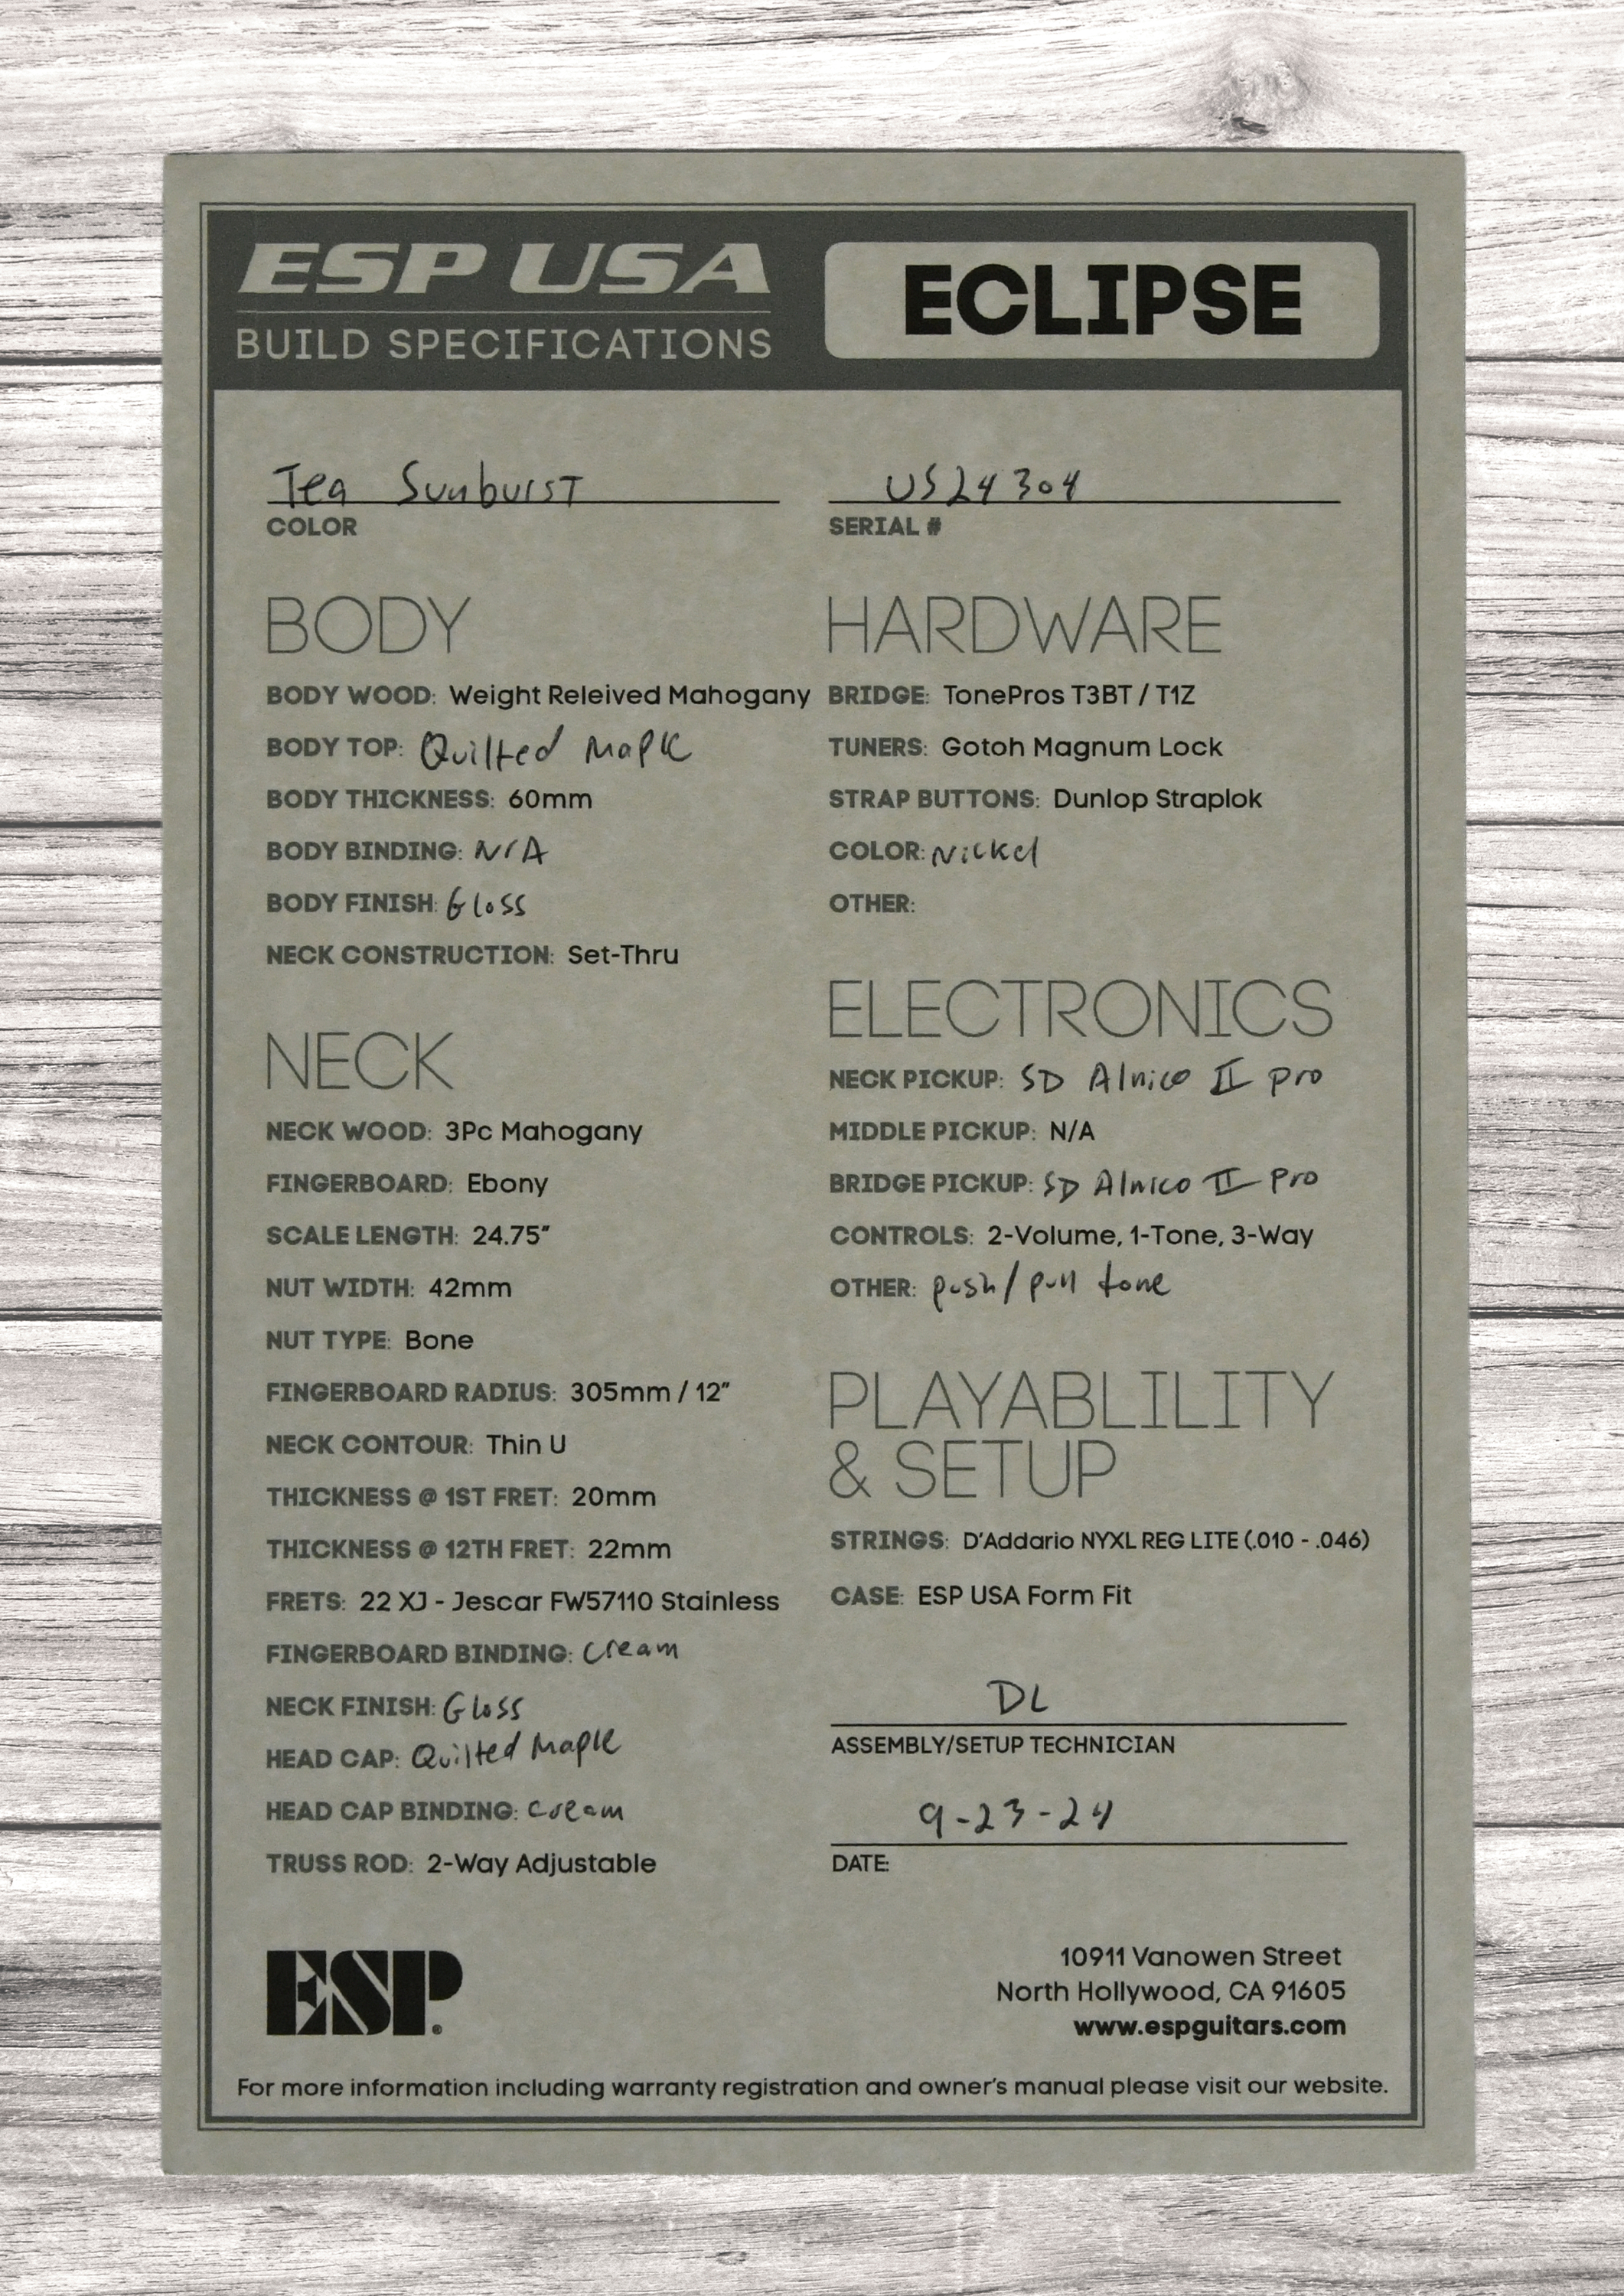 ESP USA
BUILD SPECIFICATIONS
ECLIPSE
Tea Sunburst
COLOR
US24304
SERIAL #
BODY
BODY WOOD: Weight Releived Mahogany
BODY TOP: Quilted Maple
BODY THICKNESS: 60mm
BODY BINDING: N/A
BODY FINISH: Gloss
NECK CONSTRUCTION: Set-Thru
NECK
NECK WOOD: 3Pc Mahogany
FINGERBOARD: Ebony
SCALE LENGTH: 24.75"
NUT WIDTH: 42mm
NUT TYPE: Bone
FINGERBOARD RADIUS: 305mm / 12"
NECK CONTOUR: Thin U
THICKNESS @ 1ST FRET: 20mm
THICKNESS @ 12TH FRET: 22mm
FRETS: 22 XJ - Jescar FW57110 Stainless
FINGERBOARD BINDING: Cream
NECK FINISH: Gloss
HEAD CAP: Quilted Maple
HEAD CAP BINDING: Cream
TRUSS ROD: 2-Way Adjustable
HARDWARE
BRIDGE: TonePros T3BT / T1Z
TUNERS: Gotoh Magnum Lock
STRAP BUTTONS: Dunlop Straplok
COLOR: Nickel
OTHER:
ELECTRONICS
NECK PICKUP: SD Alnico II pro
MIDDLE PICKUP: N/A
BRIDGE PICKUP: SD Alnico II Pro
CONTROLS: 2-Volume, 1-Tone, 3-Way
OTHER: push/pull tone
PLAYABLILITY
& SETUP
STRINGS: D'Addario NYXL REG LITE (.010 - .046)
CASE: ESP USA Form Fit
DL
ASSEMBLY/SETUP TECHNICIAN
9-23-24
DATE:
ESP®
10911 Vanowen Street
North Hollywood, CA 91605
www.espguitars.com
For more information including warranty registration and owner's manual please visit our website.